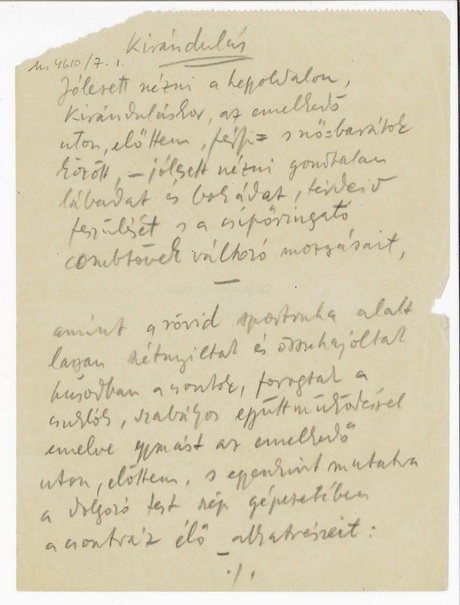 Kirándulás
M. 4610/7. 1.
Jólesett nézni a hegyoldalon,
kiránduláskor, az emelkedő
uton, előttem, férfi= s nő=barátok
között, – jólesett nézni gondtalan
lábadat és bokádat, térdeid
feszülését s a csípőringató
combtövek változó mozgásait,
—
amint a rövid sportruha alatt
lassan szétnyiltak és összehajoltak
húsodban a csontok, forogtak a
csuklók, szabályos együttműködéssel
emelve egymást az emelkedő
uton, előttem, s egyenkint mutatva
a dolgozó test szép gépezetében
a csontváz élő alkatrészeit:
—
./.